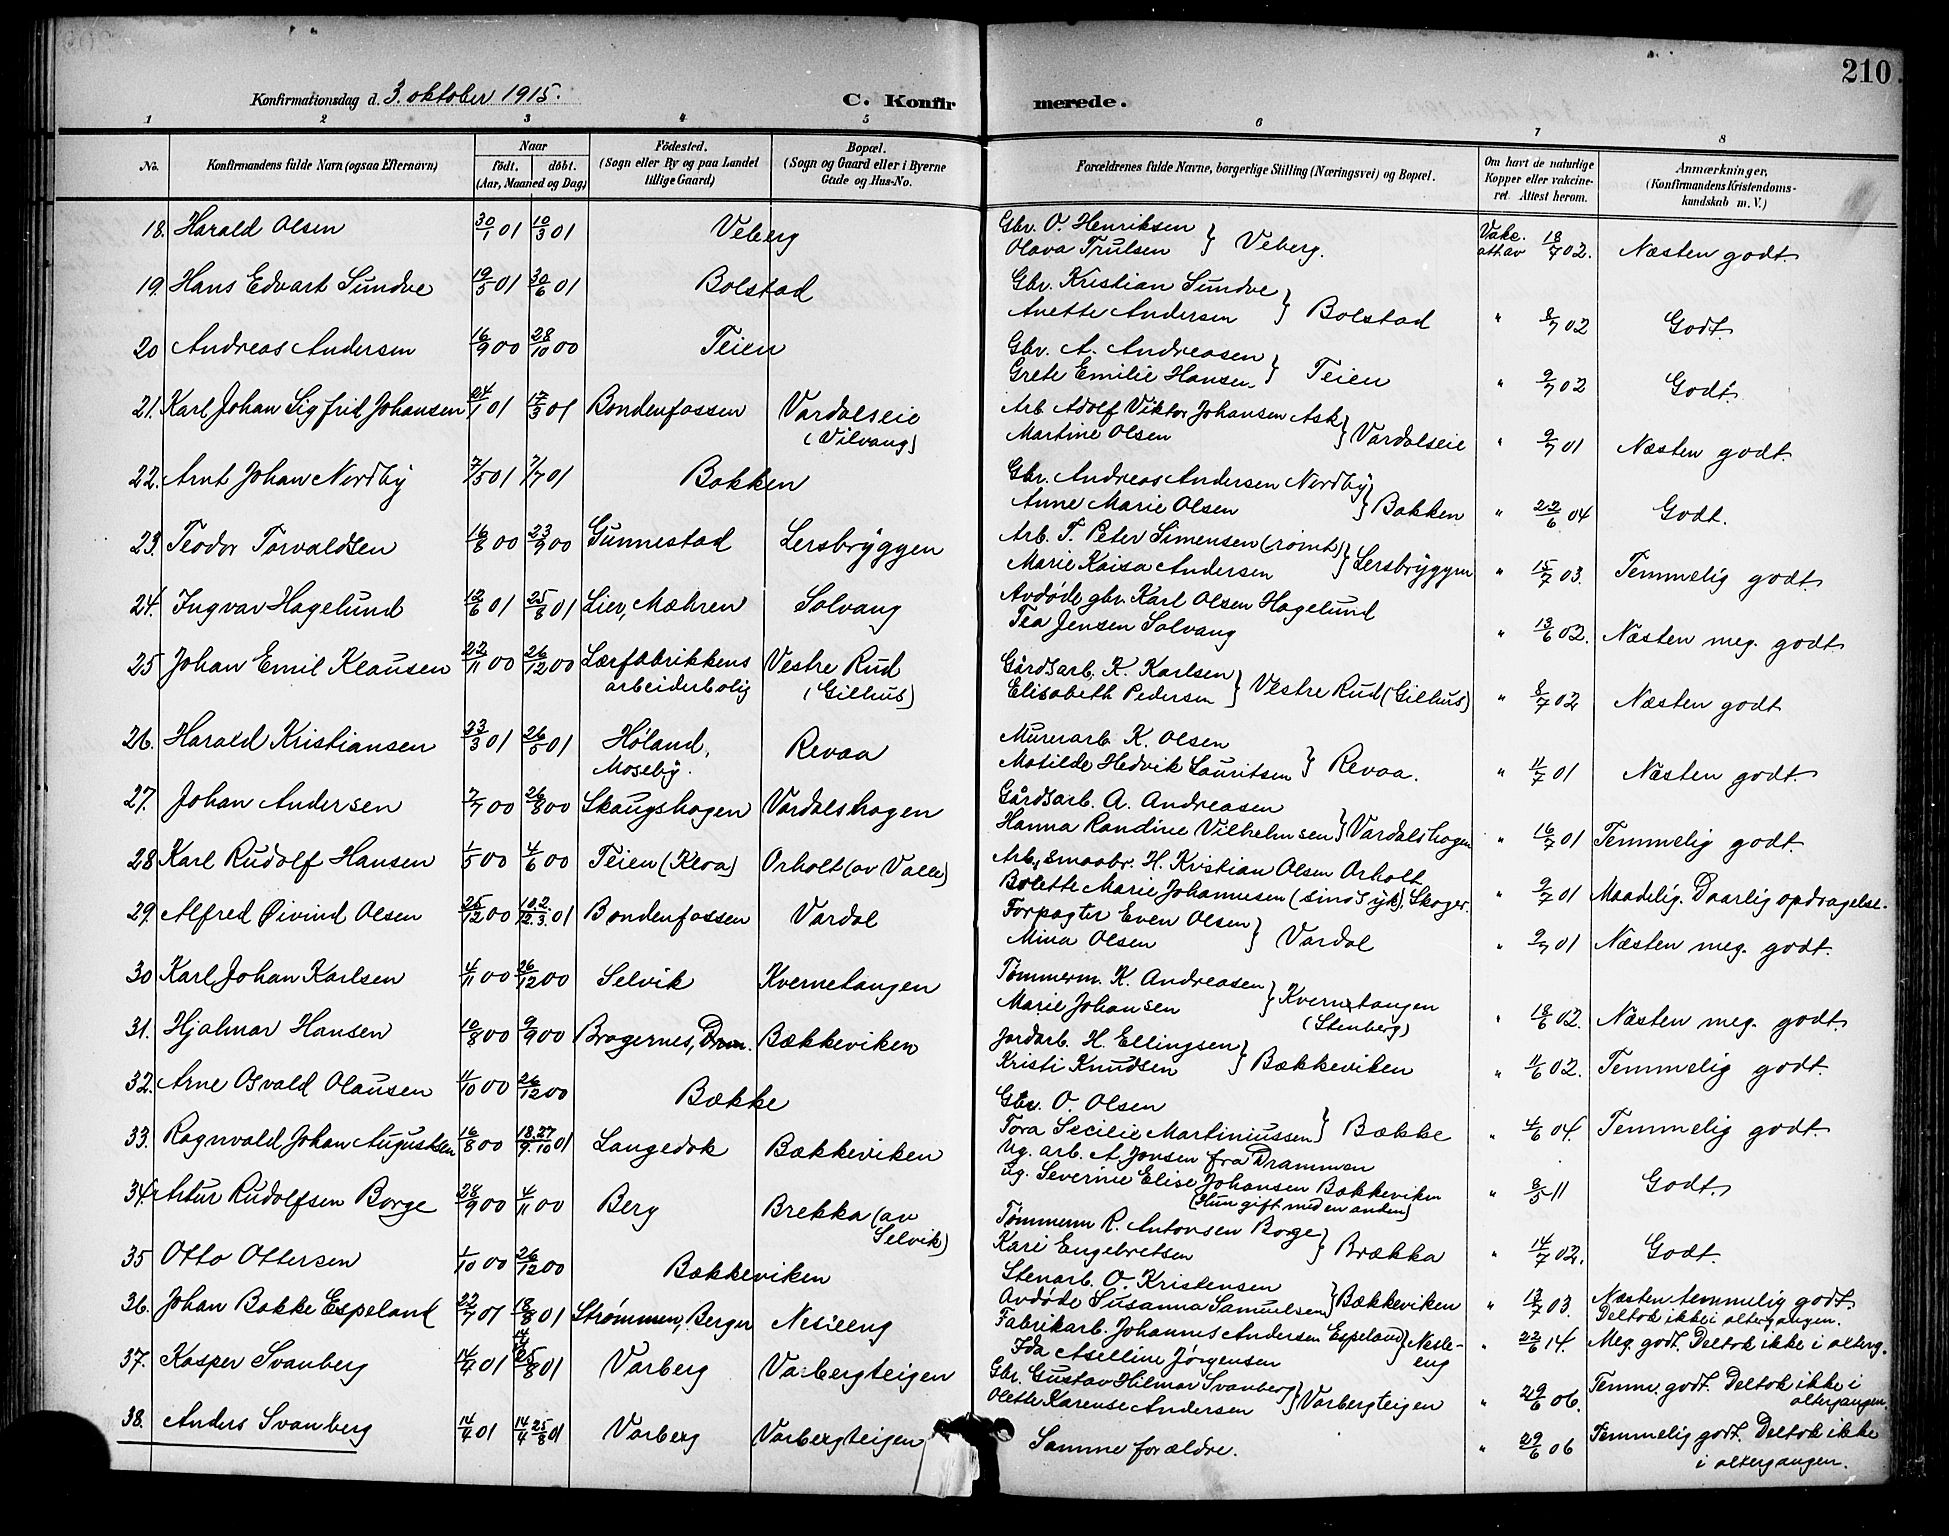 210
Konfirmationsdag d. 3. oktober 1915. C. Konfirmerede.
1 2 3 4 5 6 7 8
No. Konfirmandens fulde Navn (ogsaa Efternavn) Naar født. døbt. (Aar, Maaned og Dag) Fødested. (Sogn eller By og paa Landet tillige Gaard) Bopæl. (Sogn og Gaard eller i Byerne Gade og Hus-No. Forældrenes fulde Navne, borgerlige Stilling (Næringsvei) og Bopæl. Om havt de naturlige Kopper eller vakcineret. Attest herom. Anmærkninger, (Konfirmandens Kristendomskundskab m. V.)
18. Harald Olsen 30/1 01 10/3 01 Veberg Gbr. O. Henriksen Olava Trulsen } Veberg. Vakc. att av 18/7 02. Næsten godt.
19. Hans Edvart Sundve 19/5 01 30/6 01 Bolstad Gbr. Kristian Sundve Anette Andersen } Bolstad " 8/7 02 Godt.
20 Andreas Andersen 16/9 00 28/10 00 Teien Gbr. A. Andreasen Grete Emilie Hansen } Teien " 9/7 02 Godt.
21. Karl Johan Sigfrid Johansen 24/1 01 17/3 01 Bondenfossen Vardalseie (Vilvang) Arb. Adolf Viktor Johansen Ask Martine Olsen } Vardalseie " 9/7 01 Næsten godt.
22. Arnt Johan Nordby 7/5 01 7/7 01 Bakken Gbr. Andreas Andersen Nordby Anne Marie Olsen } Bakken " 22/6 04 Godt.
23. Teodor Torvaldsen 16/8 00 23/9 00 Gunnestad Lersbryggen Arb. T. Peter Simensen (romt) Marie Kaisa Andersen } Lersbryggen " 15/7 03. Temmelig godt.
24. Ingvar Hagelund 12/6 01 25/8 01 Lier, Mæhren Solvang Avdøde gbr. Karl Olsen Hagelund Tea Jensen Solvang " 13/6 02. Næsten meg. godt.
25 Johan Emil Klausen 22/11 00 26/12 00 Lærfabrikkens arbeiderbolig Vestre Rud (Gilhus) Gårdsarb. K. Karlsen Elisabeth Pedersen } Vestre Rud (Gilhus) " 8/7 02 Næsten godt
26. Harald Kristiansen 23/3 01 26/5 01 Høland, Moseby. Revaa Murerarb. K. Olsen Matilde Hedvik Lauritsen } Revaa. " 11/7 01 Næsten godt.
27. Johan Andersen 7/7 00 26/8 00 Skaugshagen Vardalshagen Gårdsarb. A. Andreasen Hanna Randine Vilhelmsen } Vardalshagen " 16/7 01 Temmelig godt.
28 Karl Rudolf Hansen 1/5 00 4/6 00 Teien (Kleva) Orholt (av Valle) Arb., smaabr. H. Kristian Olsen Orholt Bolette Marie Johannesen (sinds syk), Skoger. " 9/7 01 Maadelig. Daarlig opdragelse.
29. Alfred Øivind Olsen 25/12 00 10. 2./12. 3. 01 Bondenfossen Vardal Forpagter Even Olsen Mina Olsen } Vardal " 9/7 01 Næsten meg. godt.
30 Karl Johan Karlsen 4/11 00 26/12 00 Selvik Kvernetangen Tømmerm. K. Andreasen Marie Johansen } Kvernetangen (Stenberg) " 18/6 02. Næsten meg. godt.
31. Hjalmar Hansen 10/8 00 9/9 00 Bragernes, Drm. Bækkeviken Jordarb. H. Ellingsen Kristi Knudsen } Bækkeviken " 11/6 02. Temmelig godt.
32. Arne Osvald Olausen 11/10 00 26/12 00 Bække Gbr. O. Olsen Tora Secilie Martiniussen } Bække " 4/6 04. Temmelig godt.
33. Ragnvald Johan Augustsen 16/8 00 18. 27/9. 10 01 Langedok Bækkeviken Ug. arb. A. Jonsen fra Drammen ug. Severine Elise Johansen Bækkeviken (Hun gift med en anden) " 8/5 11 Godt.
34. Artur Rudolfsen Borge 28/9 00 4/11 00 Berg Brekka (av Selvik) Tømmerm R. Antonsen Borge Kari Engebretsen } Brækka " 14/7 02. Godt.
35 Otto Ottersen 1/10 00 26/12 00 Bækkeviken Stenarb. O. Kristensen Avdøde Susanna Samuelsen } Bækkeviken " 13/7 03. Næsten temmelig godt. Deltok ikke i altergangen.
36. Johan Bakke Espeland 22/7 01 18/8 01 Strømmen, Berger Nesieeng Fabrikarb. Johannes Andersen Espeland Ida Aselline Jørgensen } Nesleeng " 22/6 14. Meg. godt. Deltok ikke i alterg.
37. Kasper Svanberg 14/4 01 14/4 25/8 01 Varberg Varbergteigen Gbr. Gustav Hilmar Svanberg Olette Karense Andersen } Varbergteigen " 29/6 06. Temm. godt. Deltok ikke i altergangen
38. Anders Svanberg 14/4 01 14/4 25/8 01 Varberg Varbergteigen Samme forældre. " 29/6 06 Temmelig godt. Deltok ikke i altergangen.